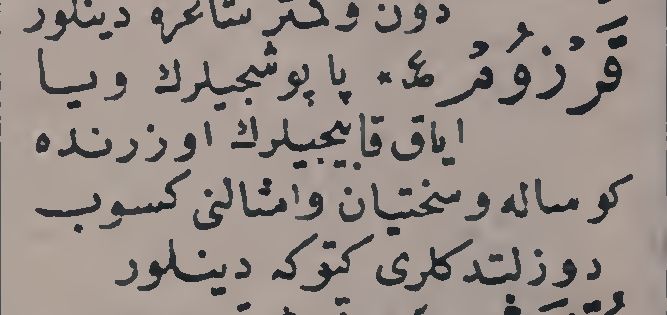 دون وكمتر شاعره دينلور
قَرْزُومْ ع * پاپوشجيلرك ويا
اياق قاپيجيلرك اوزرنده
كوساله وسختيان وامثالنى كسوب
دوزلتدكلرى كتوكه دينلور